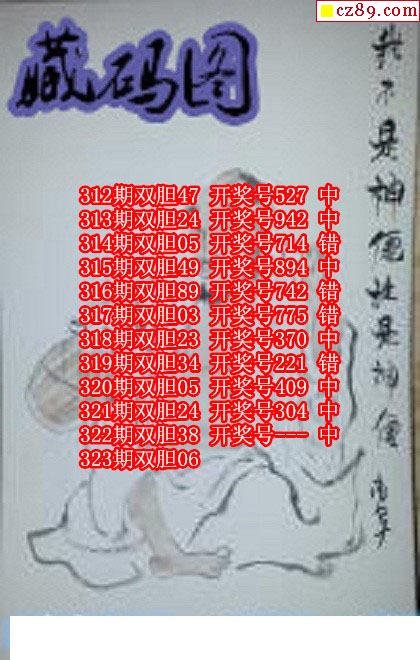 cz89.com
藏码图
312期双胆47 开奖号527 中
313期双胆24 开奖号942 中
314期双胆05 开奖号714 错
315期双胆49 开奖号894 中
316期双胆89 开奖号742 错
317期双胆03 开奖号775 错
318期双胆23 开奖号370 中
319期双胆34 开奖号221 错
320期双胆05 开奖号409 中
321期双胆24 开奖号304 中
322期双胆38 开奖号--- 中
323期双胆06
我不是神
是神